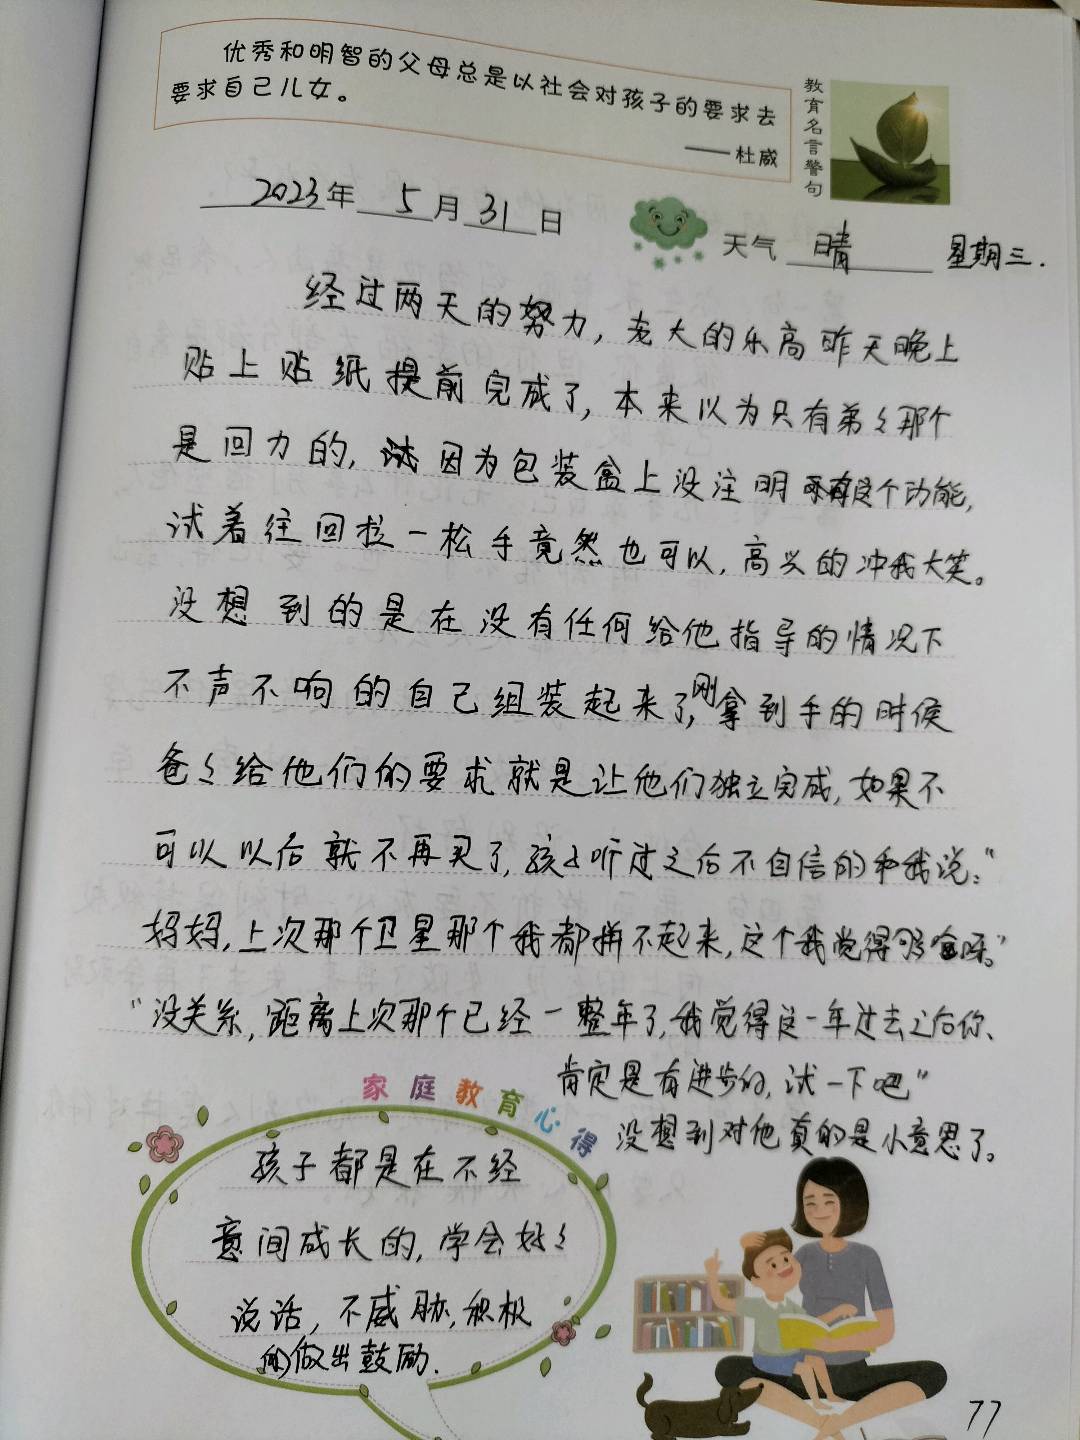 优秀和明智的父母总是以社会对孩子的要求去
要求自己儿女。
——杜威
教育名言警句
2023年 5月31日
天气 晴 星期三.
经过两天的努力，老大的乐高昨天晚上
贴上贴纸提前完成了，本来以为只有弟々那个
是回力的，因为包装盒上没注明这个功能，
试着往回拉一松手竟然也可以，高兴的冲我大笑。
没想到的是在没有任何给他指导的情况下
不声不响的自己组装起来了，刚拿到手的时候
爸々给他们的要求就是让他们独立完成，如果不
可以以后就不再买了，孩子听过之后不自信的和我说：“
妈妈，上次那个卫星那个我都拼不起来，这个我觉得够呛呀。”
“没关系，距离上次那个已经一整年了，我觉得这一年过去之后你、
肯定是有进步的，试一下吧”
没想到对他真的是小意思了。
家庭教育心得
孩子都是在不经
意间成长的，学会好々
说话，不威胁，积极
的做出鼓励.
77